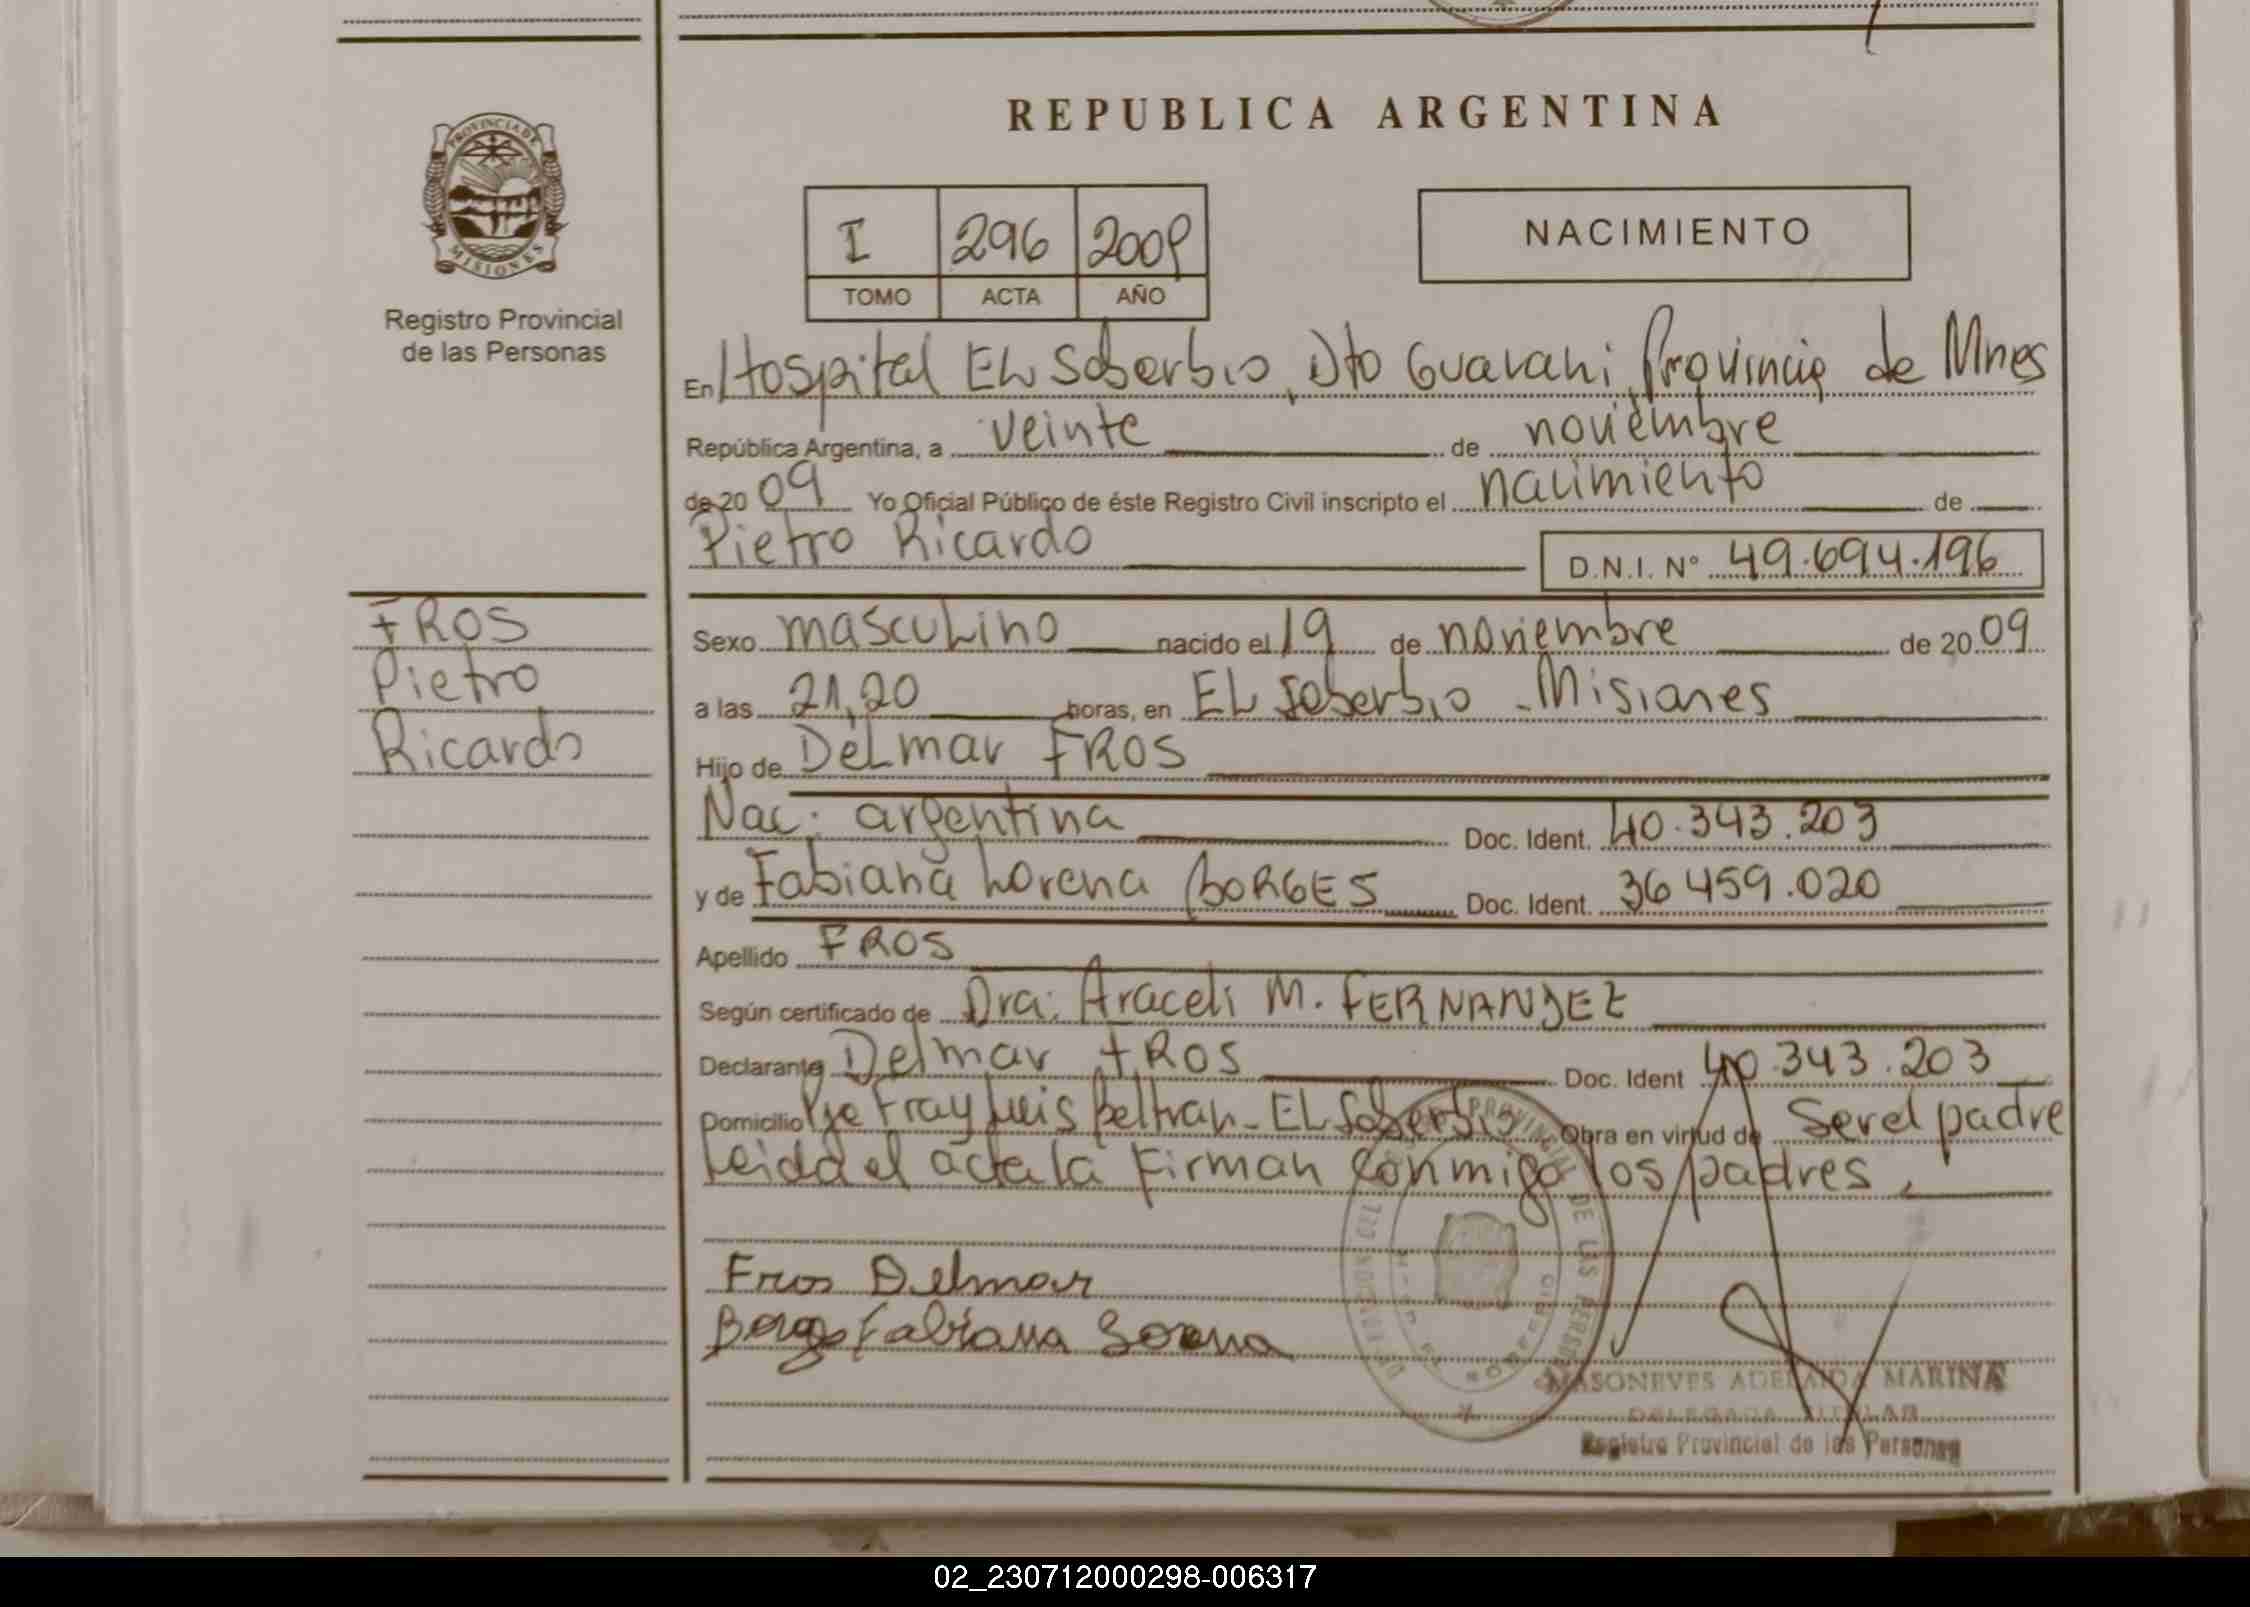 REPUBLICA ARGENTINA
PROVINCIA DE
MISIONES
Registro Provincial
de las Personas
I 296 2009
TOMO ACTA AÑO
NACIMIENTO
En Hospital EL Soberbio, Dto Guarani, Provincia de Mnes
República Argentina, a veinte de noviembre
de 2009 Yo Oficial Público de éste Registro Civil inscripto el nacimiento de
Pietro Ricardo D.N.I. N° 49.694.196
FROS
Pietro
Ricardo
Sexo masculino nacido el 19 de noviembre de 2009
a las 21,20 horas, en EL Soberbio - Misiones
Hijo de Delmar FROS
Nac: argentina Doc. Ident. 40.343.203
y de Fabiana Lorena BORGES Doc. Ident. 36 459.020
Apellido FROS
Según certificado de Dra: Araceli M. FERNANDEZ
Declarante Delmar FROS Doc. Ident 40.343.203
Domicilio Pje Fray Luis Beltran - EL Soberbio Obra en virtud de Ser el padre
Leida el acta la firman conmigo los padres.
Fros Delmar
Borges Fabiana Lorena
PROVINCIAL DE LAS PERSONAS
ADELAIDA MARINA
DELEGADA TITULAR
Registro Provincial de las Personas
02_230712000298-006317